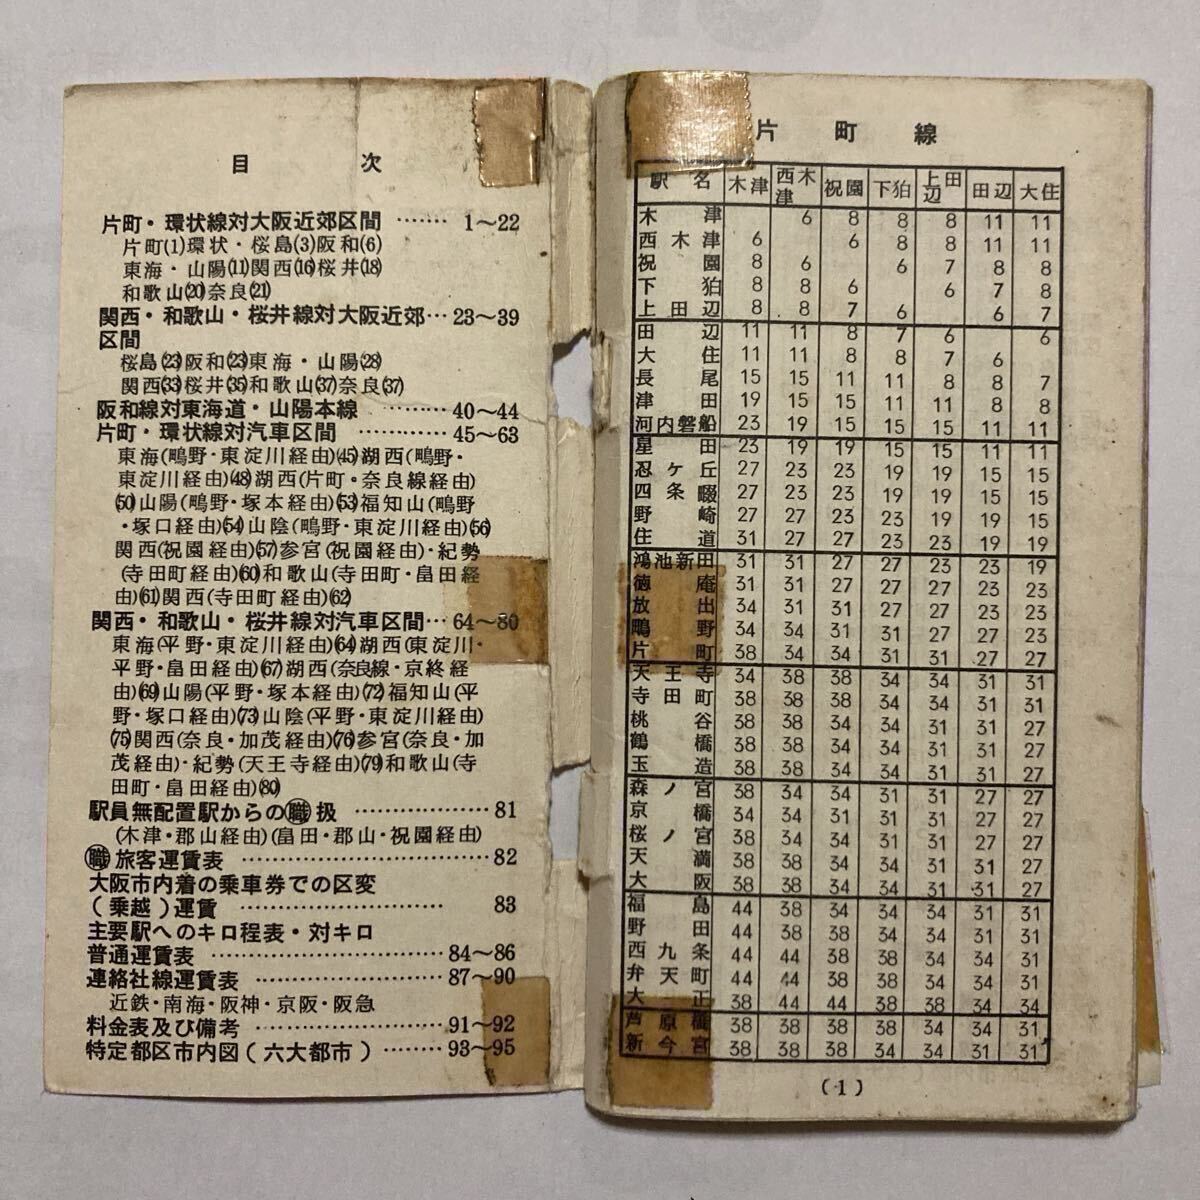 目次
片町・環状線対大阪近郊区間 ‥‥‥ 1～22
片町(1)環状・桜島(3)阪和(6)
東海・山陽(11)関西(16)桜井(18)
和歌山(20)奈良(21)
関西・和歌山・桜井線対大阪近郊‥‥ 23～39
区間
桜島(23)阪和(23)東海・山陽(28)
関西(33)桜井(35)和歌山(37)奈良(37)
阪和線対東海道・山陽本線 ‥‥‥‥‥ 40～44
片町・環状線対汽車区間 ‥‥‥‥‥‥ 45～63
東海(鴫野・東淀川経由)(45)湖西(鴫野・
東淀川経由)(48)湖西(片町・奈良線経由)
(50)山陽(鴫野・塚本経由)(53)福知山(鴫野
・塚口経由)(54)山陰(鴫野・東淀川経由)(56)
関西(祝園経由)(57)参宮(祝園経由)・紀勢
(寺田町経由)(60)和歌山(寺田町・畠田経
由)(61)関西(寺田町経由)(62)
関西・和歌山・桜井線対汽車区間‥‥ 64～80
東海(平野・東淀川経由)(64)湖西(東淀川・
平野・畠田経由)(67)湖西(奈良線・京終経
由)(69)山陽(平野・塚本経由)(72)福知山(平
野・塚口経由)(73)山陰(平野・東淀川経由)
(75)関西(奈良・加茂経由)(76)参宮(奈良・加
茂経由)・紀勢(天王寺経由)(79)和歌山(寺
田町・畠田経由)(80)
駅員無配置駅からの㊙扱 ‥‥‥‥‥‥‥ 81
(木津・郡山経由)(畠田・郡山・祝園経由)
旅客運賃表 ‥‥‥‥‥‥‥‥‥‥‥‥‥ 82
大阪市内着の乗車券での区変
(乗越)運賃 ‥‥‥‥‥‥‥‥‥‥‥‥ 83
主要駅へのキロ程表・対キロ
普通運賃表 ‥‥‥‥‥‥‥‥‥‥‥‥ 84～86
連絡社線運賃表 ‥‥‥‥‥‥‥‥‥‥ 87～90
近鉄・南海・阪神・京阪・阪急
料金表及び備考 ‥‥‥‥‥‥‥‥‥‥ 91～92
特定都区市内図(六大都市)‥‥‥‥ 93～95
片町線
駅名 木津 西木津 祝園 下狛 上田辺 田辺 大住
木津 6 8 8 8 11 11
西木津 6 6 8 8 11 11
祝園 8 6 6 7 8 8
下狛 8 8 6 6 7 8
上田辺 8 8 7 6 6 7
田辺 11 11 8 7 6 6
大住 11 11 8 8 7 6
長尾 15 15 11 11 8 8 7
津田 19 15 15 11 11 8 8
河内磐船 23 19 15 15 15 11 11
星田 23 19 19 15 15 11 11
忍ケ丘 27 23 23 19 19 15 15
四条畷 27 23 23 19 19 15 15
野崎 27 27 23 23 19 19 15
住道 31 27 27 23 23 19 19
鴻池新田 31 31 27 27 23 23 19
徳庵 31 31 27 27 27 23 23
放出 34 31 31 27 27 23 23
鴫野 34 34 31 31 27 27 23
片町 38 34 34 31 31 27 27
天王寺 34 38 38 34 34 31 31
寺田町 38 38 38 34 34 31 31
桃谷 38 38 34 34 31 31 27
鶴橋 38 38 34 34 31 31 27
玉造 38 38 34 34 31 31 27
森ノ宮 38 34 34 31 31 27 27
京橋 34 34 34 31 31 27 27
桜ノ宮 38 34 34 31 31 27 27
天満 38 38 34 34 31 31 27
大阪 38 38 34 34 31 31 27
福島 44 38 34 34 34 31 31
野田 44 38 38 34 34 31 31
西九条 44 44 38 38 34 34 31
弁天町 44 44 38 38 34 34 31
大正 38 44 44 38 38 34 34
芦原橋 38 38 38 38 34 34 31
新今宮 38 38 38 34 34 31 31
(1)